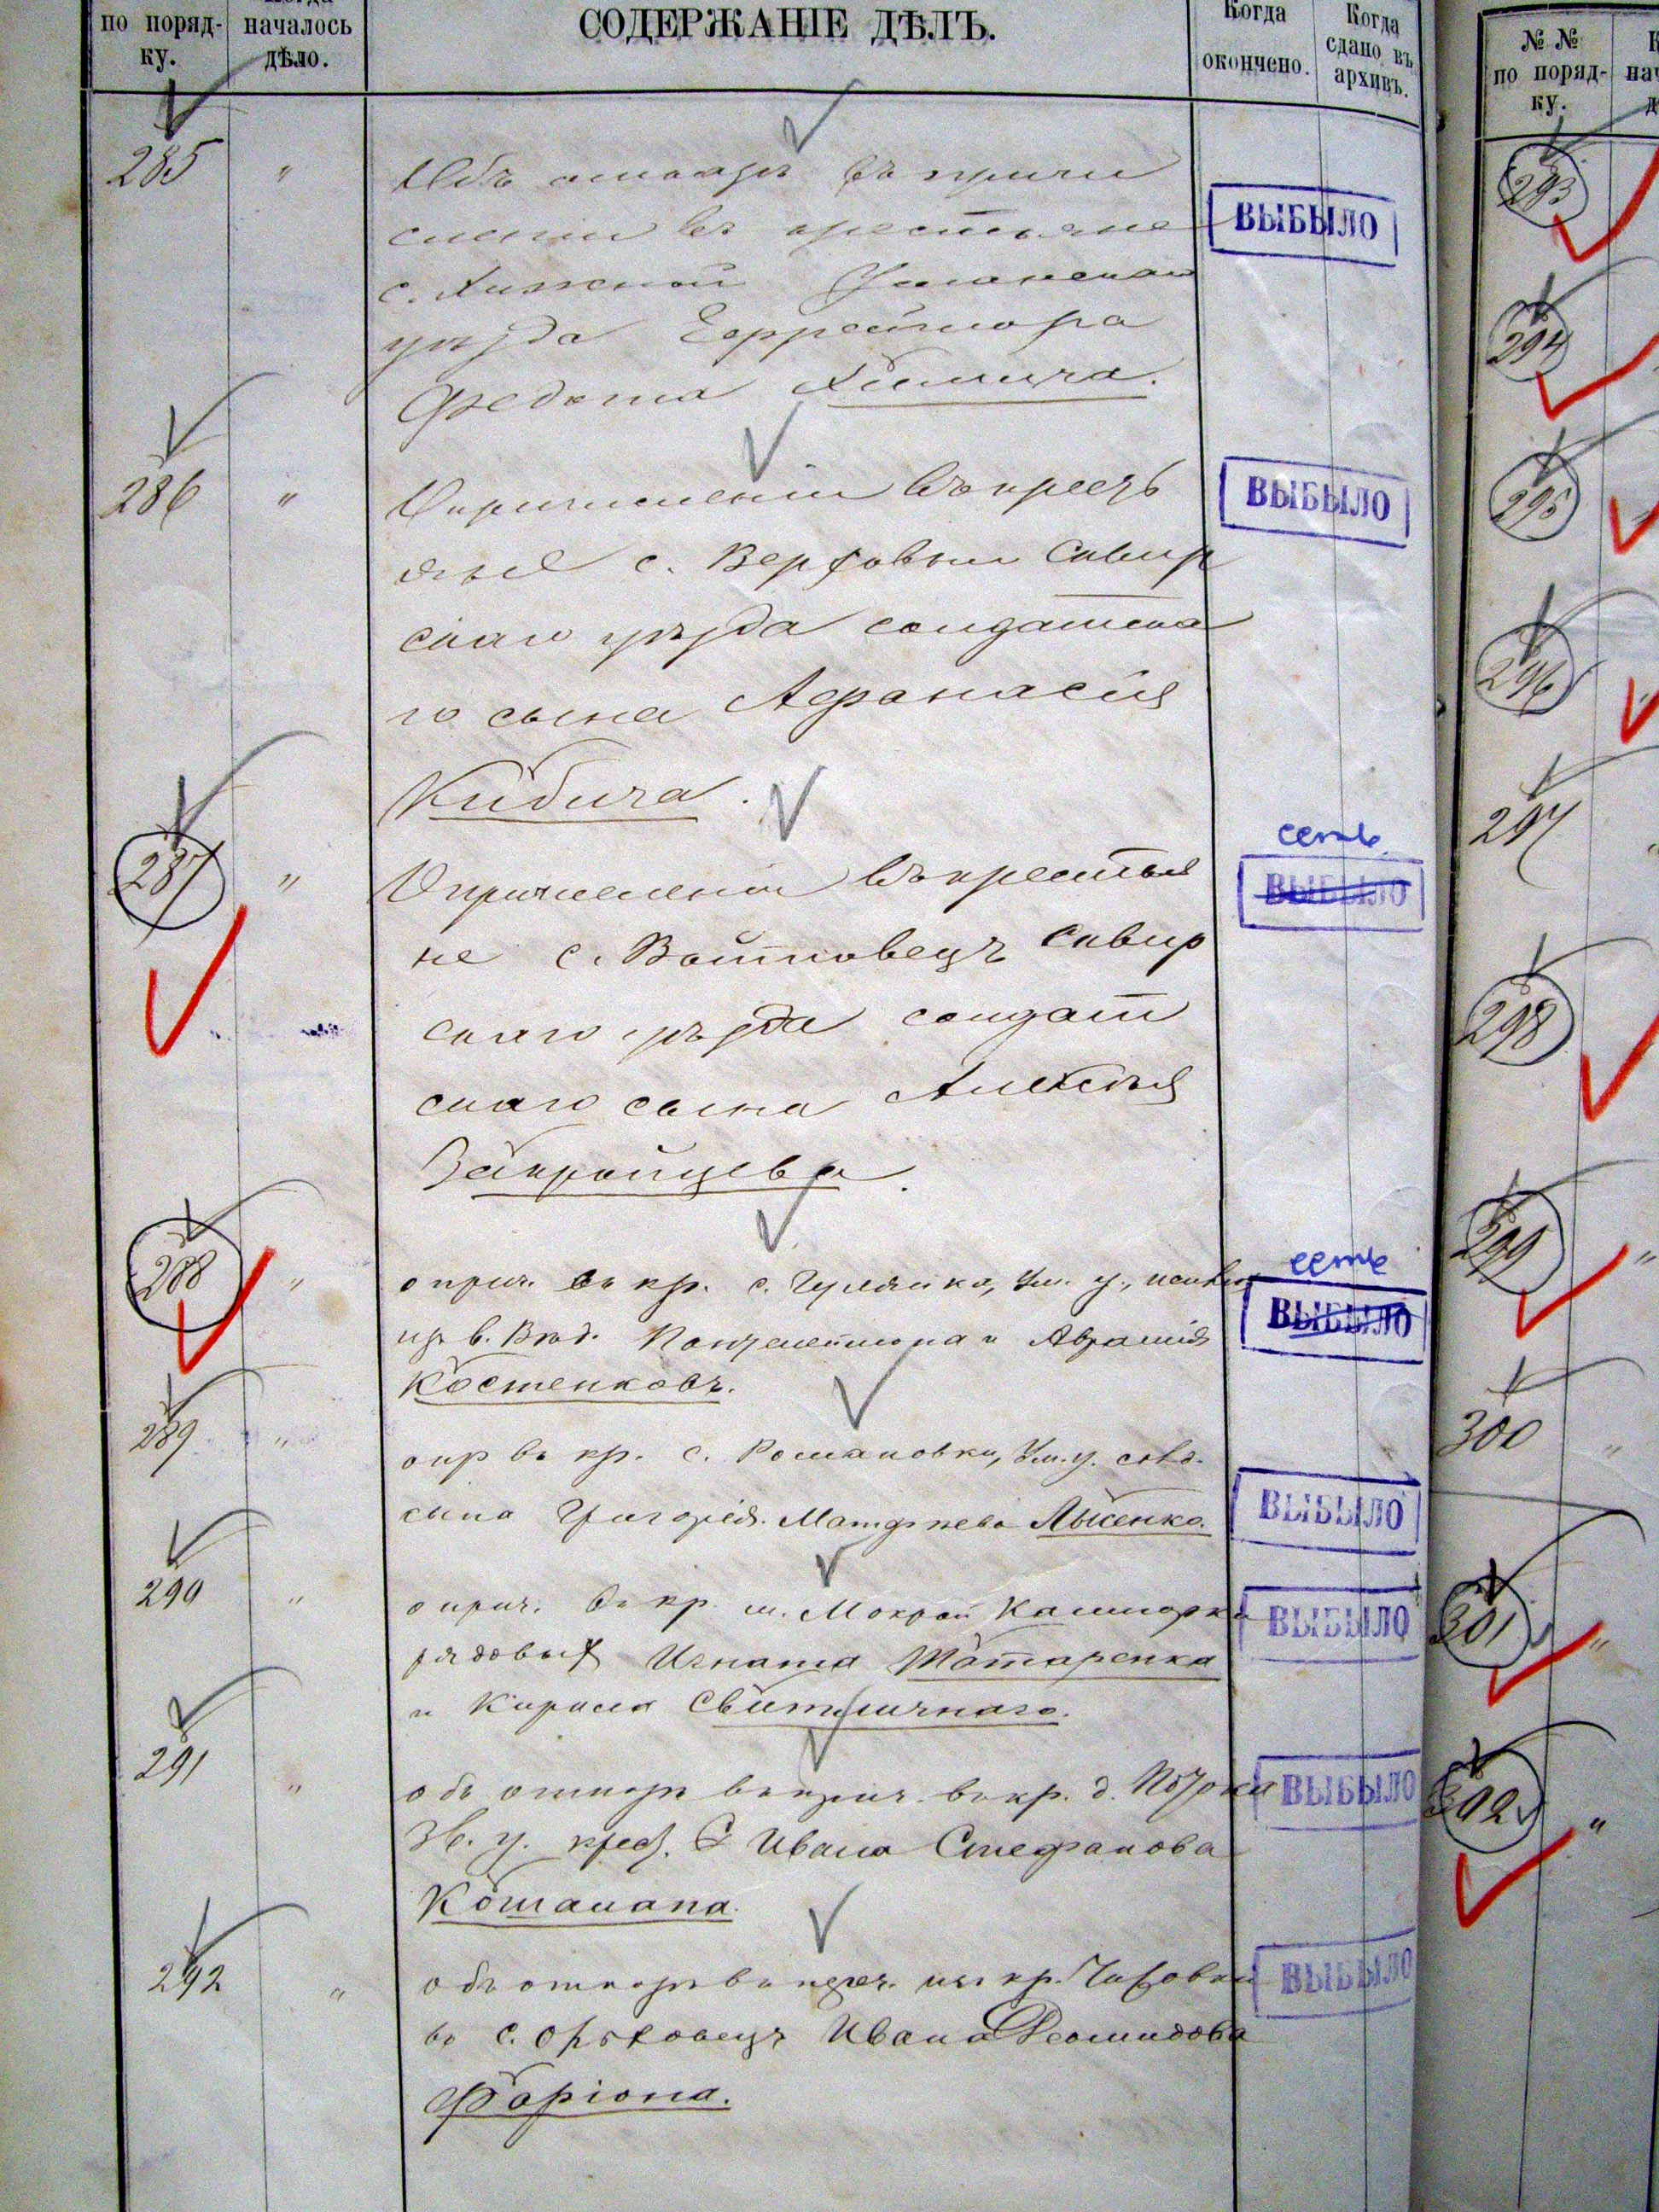 по поряд-
ку.
началось
дѣло.
СОДЕРЖАНІЕ ДѢЛЪ.
Когда
окончено.
Когда
сдано въ
архивъ.
285 "
Объ отказѣ въ причи
сленіи въ крестьяне
с. Уманскаго
уѣзда Ефрейтора
Федота
ВЫБЫЛО
286 "
О причисленіи въ крест
яне с. Верховни Сквир
скаго уѣзда солдатска
го сына Афанасія
Кибича.
ВЫБЫЛО
287 "
О причисленіи въ крестья
не с. Войтовецъ Сквир
скаго уѣзда солдат
скаго сына Алексѣя
Закройцева.
есть
ВЫБЫЛО
288 "
о прич. въ кр. с. Гуляйки, Ум. у.,
Пантелеймона и Аврамія
Костенковъ.
есть
ВЫБЫЛО
289 "
о пр въ кр. с. Романовки, Ум. у.
сына Григорія Матфѣева Лысенко.
ВЫБЫЛО
290 "
о прич. въ кр. м. Мокрой Калигорки
рядовых Игната Татаренка
и Кирила Свитличнаго.
ВЫБЫЛО
291 "
объ отказѣ въ прич. въ кр. д.
Зв. у. Ивана Стефанова
ВЫБЫЛО
292 "
объ отказѣ въ изъ кр.
въ с. Орѣховецъ Ивана
Фаріона.
ВЫБЫЛО
№ №
по поряд-
ку.
293
294
295
296
297
298
299 "
300 "
301 "
302 "